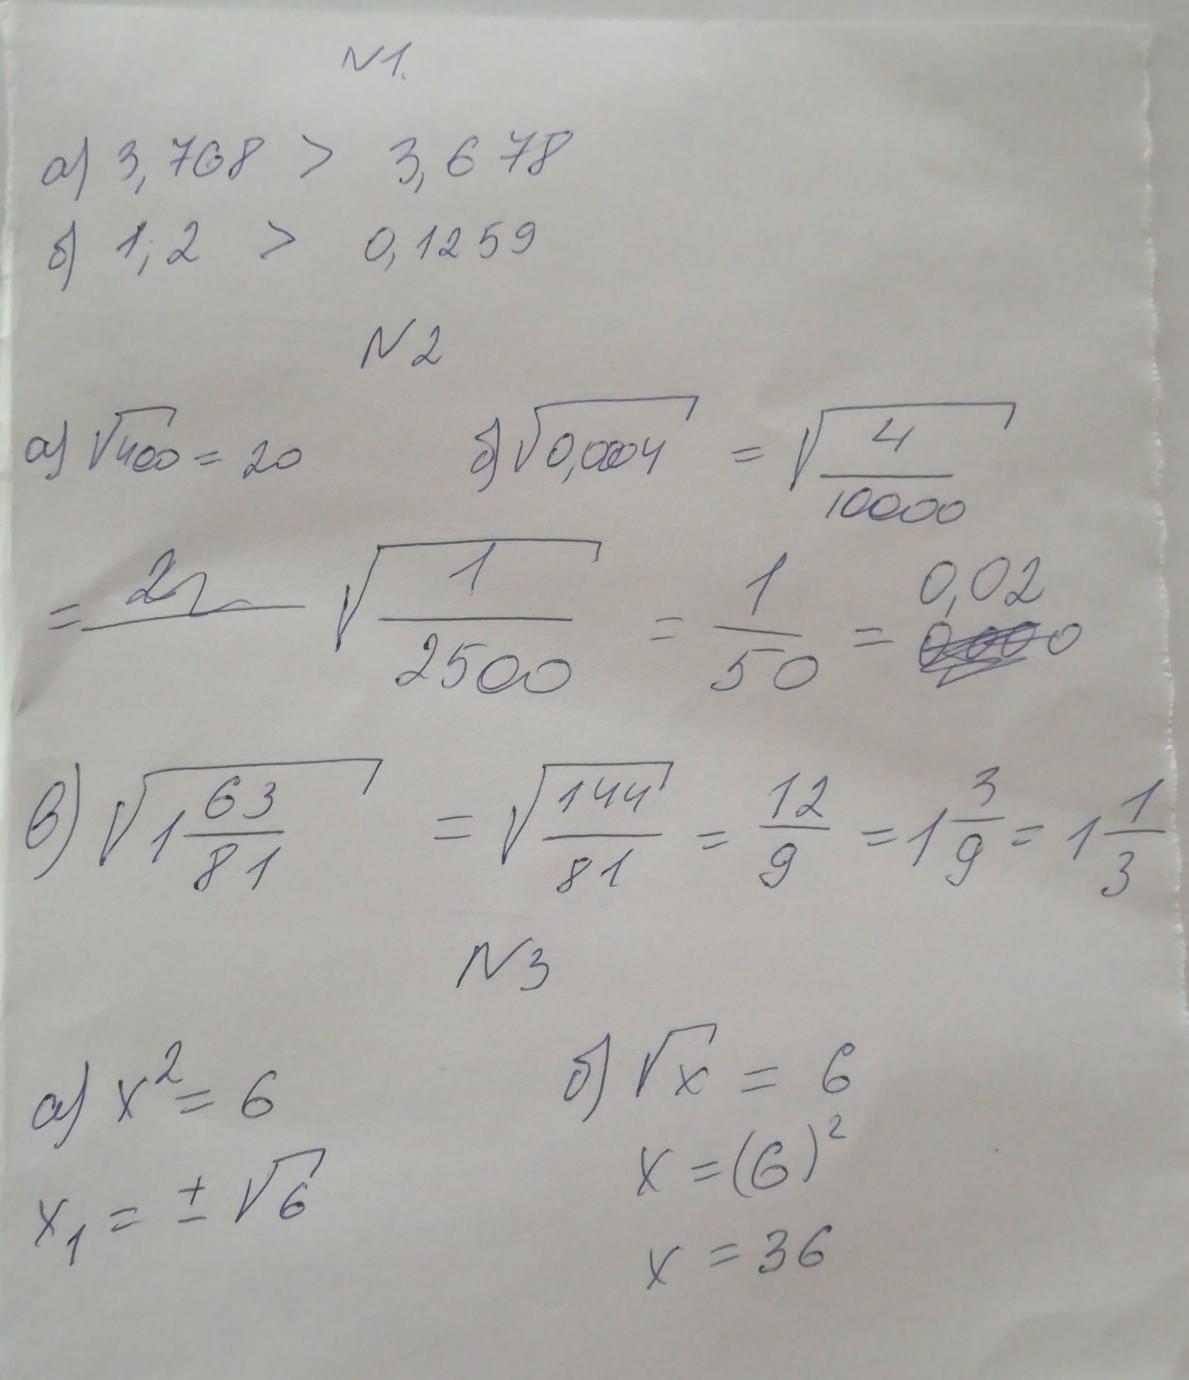 N1.
а) 3,768 > 3,678
б) 1,2 > 0,1259
N2
а) √400 = 20 б) √0,0004 = √(4/10000)
= √(1/2500) = 1/50 = 0,02
в) √(1 63/81) = √(144/81) = 12/9 = 1 3/9 = 1 1/3
N3
а) x² = 6 б) √x = 6
x = (6)²
x₁ = ± √6
x = 36